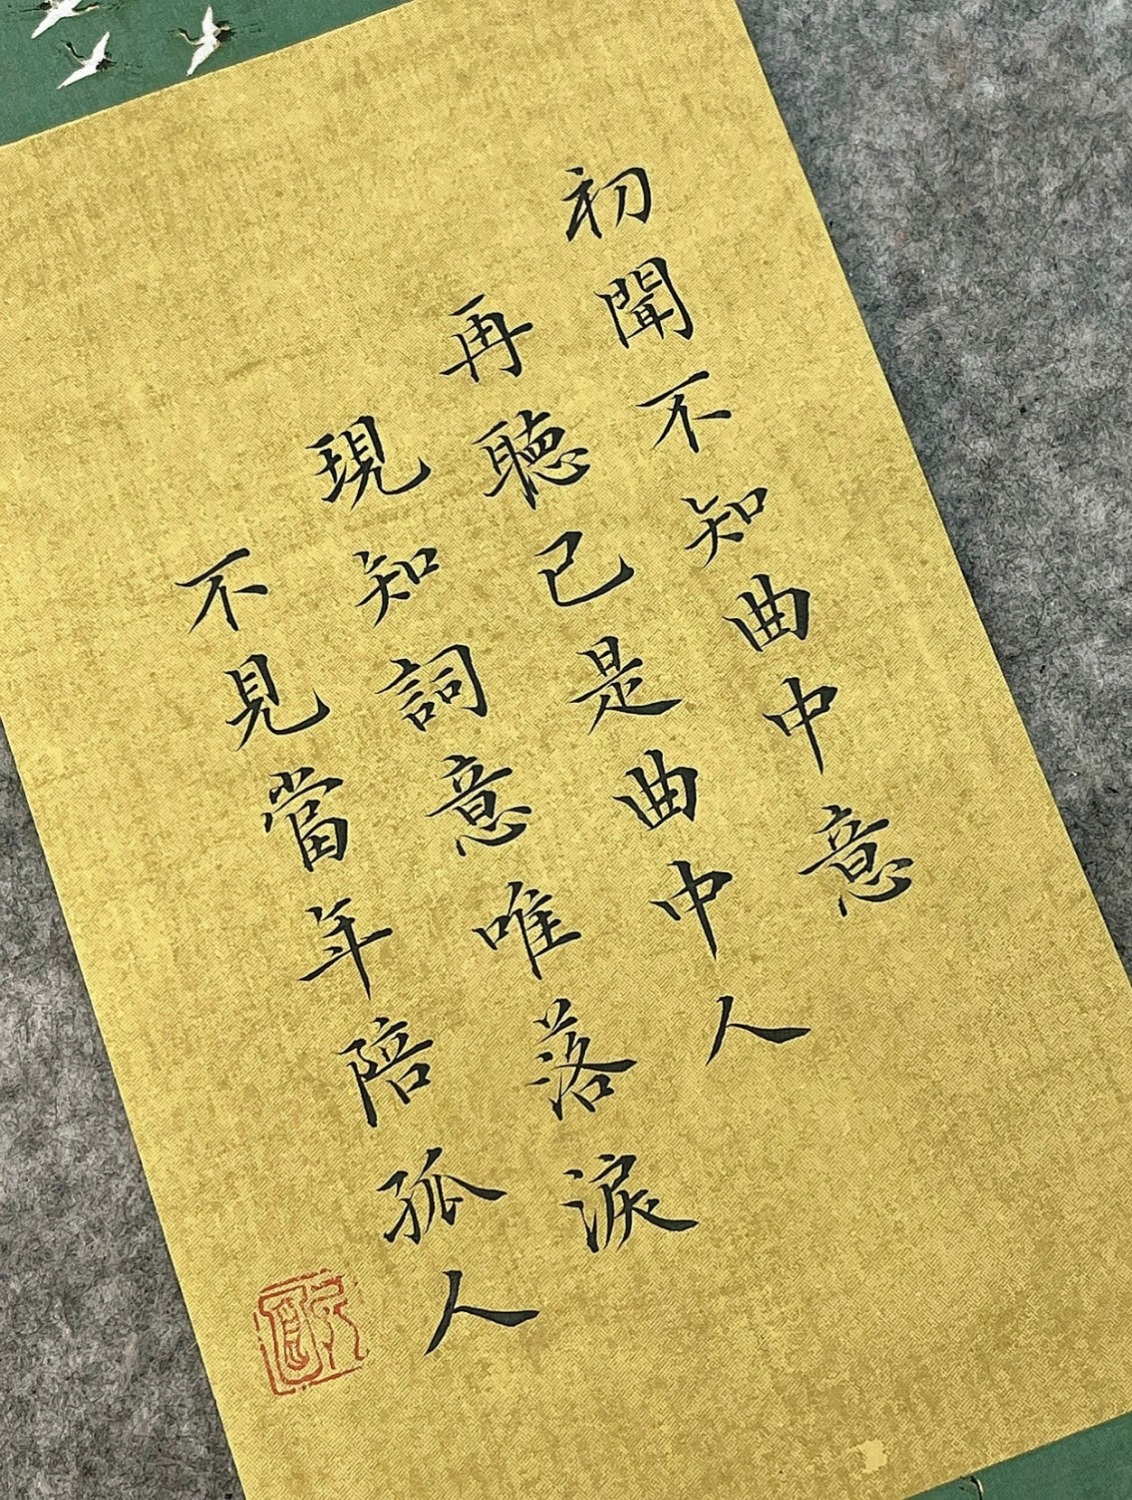 初聞不知曲中意
再聽已是曲中人
現知詞意唯落淚
不見當年陪孤人